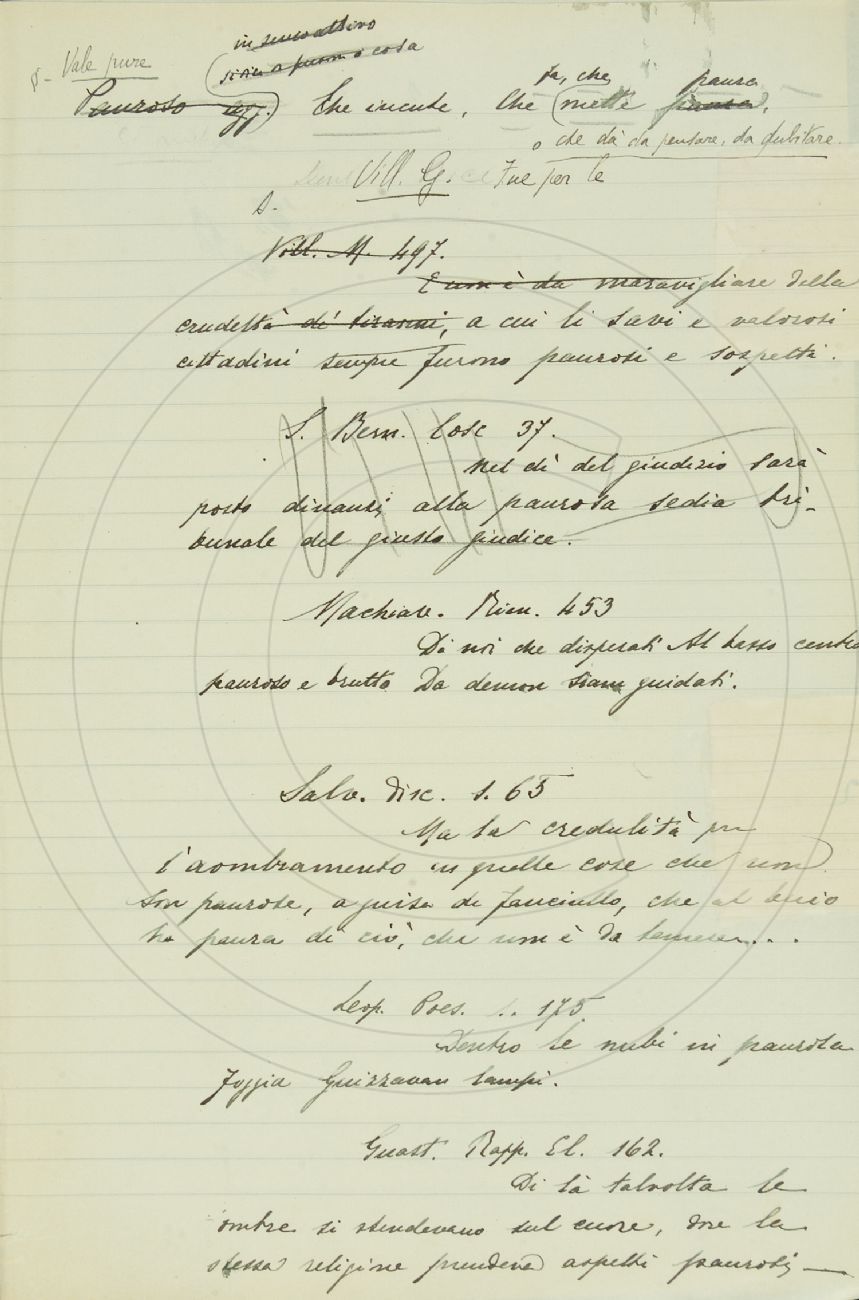 in senso attivo
§ - Vale pure
di cosa o persona o cosa
Pauroso agg. Che incute, Che fa, che mette paura paura,
o che dà da pensare, da dubitare.
Vill. G. Tue per le
s.
Vill. M. 497.
E non è da maravigliare della
crudeltà de' tiranni, a cui li savi e valorosi
cittadini sempre furono paurosi e sospetti.
S. Bern. Cose 37.
Nel dì del giudizio sarà
posto dinanzi alla paurosa sedia tri-
bunale del giusto giudice.
Machiav. Rim. 453
Di noi che disperati Al basso centro
pauroso e brutto Da demon siam guidati.
Salv. Disc. 1. 65
Ma la credulità
l'aombramento in quelle cose che non
son paurose, a guisa di fanciullo, che al buio
ha paura di ciò, che non è da temere...
Leop. Poes. 175.
Dentro le nubi in paurosa
foggia Guizzavan lampi.
Guast. Rapp. El. 162.
Di là talvolta le
ombre si stendevano sul cuore, dove la
stessa religione prendeva aspetti paurosi —